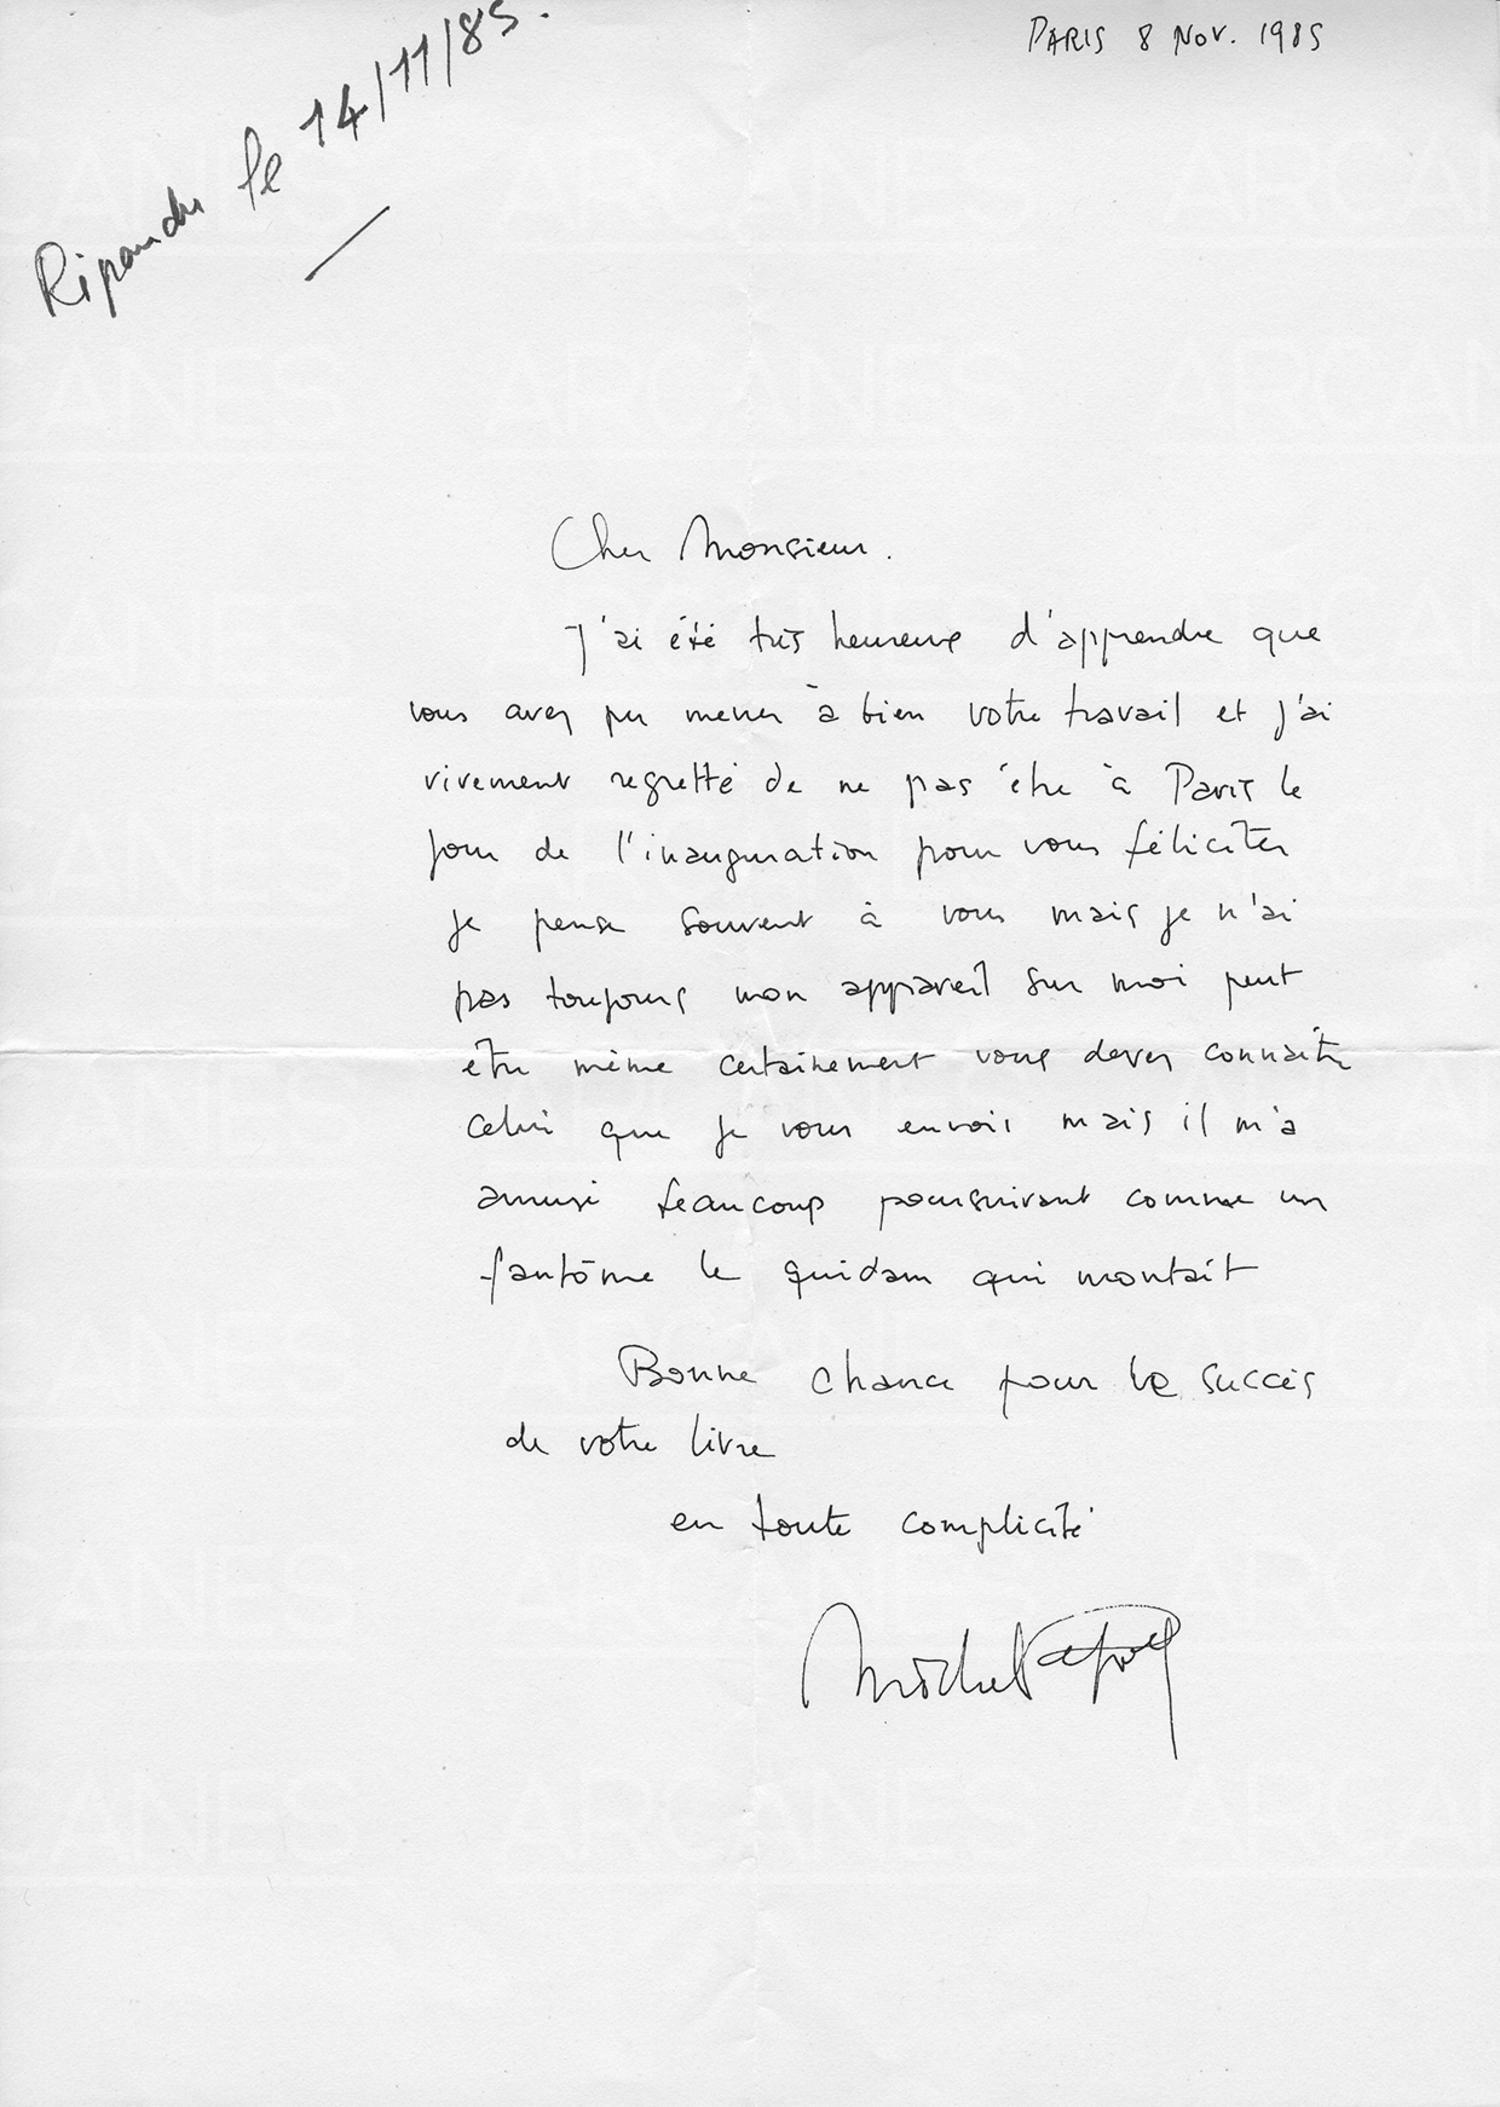 PARIS 8 NOV. 1985
Répondu le 14/11/85.
Cher Monsieur.
J'ai été très heureux d'apprendre que
vous avez pu mener à bien votre travail et j'ai
vivement regretté de ne pas être à Paris le
jour de l'inauguration pour vous féliciter
je pense souvent à vous mais je n'ai
pas toujours mon appareil sur moi peut
être même certainement vous devez connaître
celui que je vous envois mais il m'a
amusé beaucoup poursuivant comme un
fantôme le quidam qui montait
Bonne chance pour le succès
de votre livre
en toute complicité
Michel
ARCANES